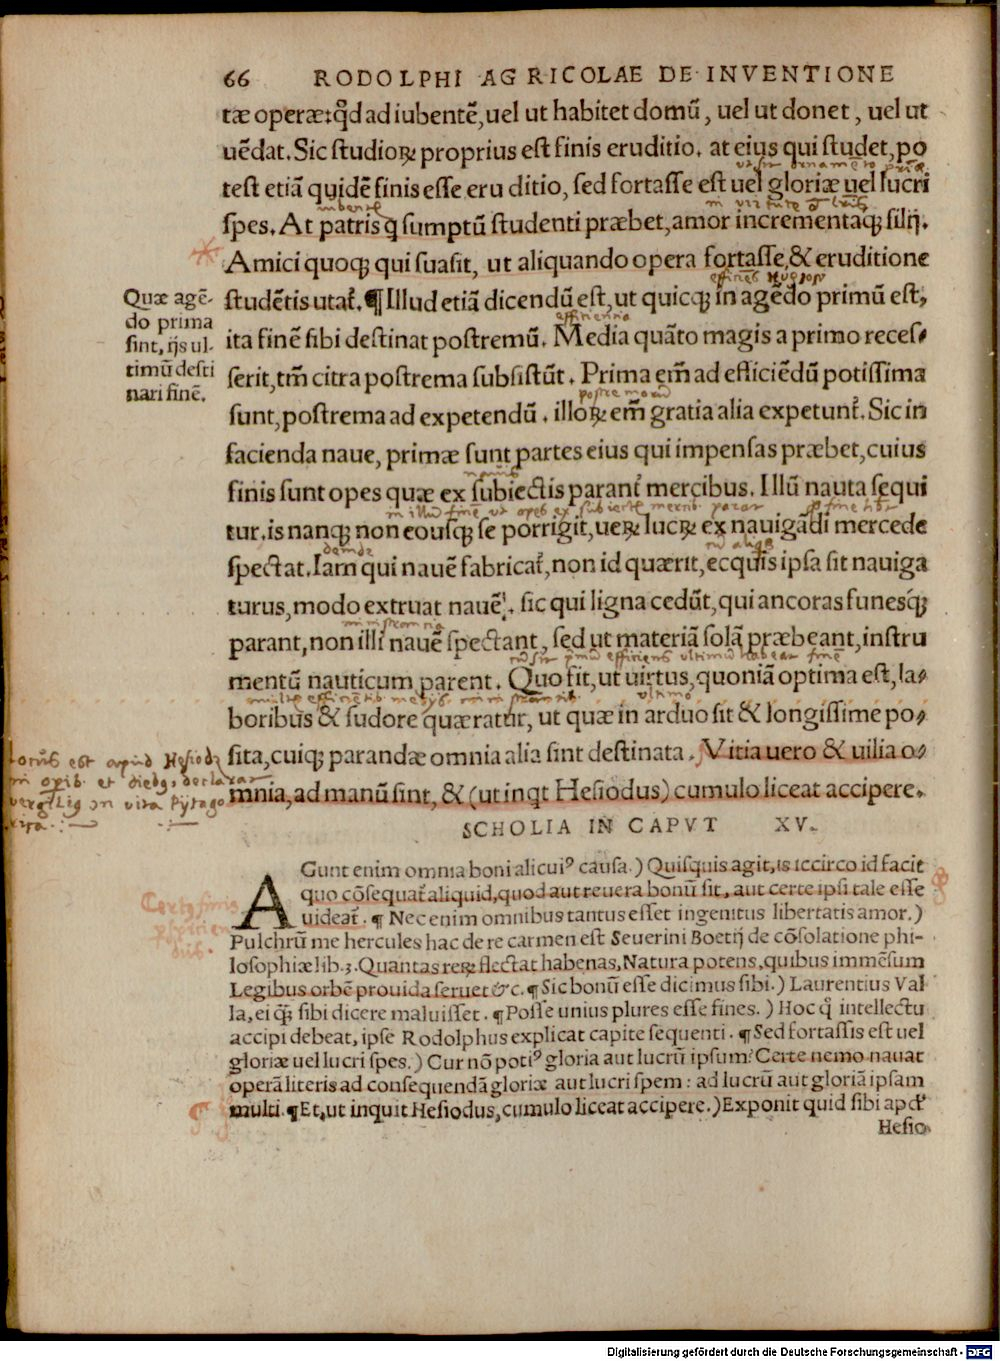 66 RODOLPHI AGRICOLAE DE INVENTIONE
tæ operæ: qđ ad iubentē, uel ut habitet domū, uel ut donet, uel ut
uēdat. Sic studioꝝ proprius est finis eruditio. at eius qui studet, po
test etiā quidē finis esse eru ditio, sed fortasse est uel gloriæ uel lucri
spes. At patris q̃ sumptū studenti præbet, amor incrementaqꝫ filij.
Amici quoqꝫ qui suasit, ut aliquando opera fortasse, & eruditione
studētis utat̃. ¶ Illud etiā dicendū est, ut quicqꝫ in agēdo primū est,
Quæ agē-
do prima
sint, ijs ul-
timū desti
nari finē.
ita finē sibi destinat postremū. Media quāto magis a primo reces-
serit, tm̃ citra postrema subsistūt. Prima em̃ ad efficiēdū potissima
sunt, postrema ad expetendū. illoꝝ em̃ gratia alia expetunt̃. Sic in
facienda naue, primæ sunt partes eius qui impensas præbet, cuius
finis sunt opes quæ ex subiectis parant̃ mercibus. Illū nauta sequi
tur. is nanqꝫ non eousqꝫ se porrigit, ueꝝ lucꝝ ex nauigādi mercede
spectat. Iam qui nauē fabricat̃, non id quærit, ecquis ipsa sit nauiga
turus, modo extruat nauē. sic qui ligna cedūt, qui ancoras funesqꝫ
parant, non illi nauē spectant, sed ut materiā solā præbeant, instru
mentū nauticum parent. Quo fit, ut uirtus, quoniā optima est, la-
boribus & sudore quæratur, ut quæ in arduo sit & longissime po-
sita, cuiqꝫ parandæ omnia alia sint destinata. Vitia uero & uilia o-
mnia, ad manū sint, & (ut inqt Hesiodus) cumulo liceat accipere.
Locus est apud Hesiodū
in opib. et dieb. declarat
SCHOLIA IN CAPVT XV.
AGunt enim omnia boni alicuiꝰ causa.) Quisquis agit, is iccirco id facit
quo cōsequat̃ aliquid, quod aut reuera bonū sit, aut certe ipsi tale esse
uideat̃. ¶ Nec enim omnibus tantus esset ingenitus libertatis amor.)
Pulchrū me hercules hac de re carmen est Seuerini Boetij de cōsolatione phi-
losophiæ lib. 3. Quantas reꝝ flectat habenas, Natura potens, quibus immēsum
Legibus orbē prouida seruet &c. ¶ Sic bonū esse dicimus sibi.) Laurentius Val
la, ei qꝫ sibi dicere maluisset. ¶ Posse unius plures esse fines.) Hoc q̊ intellectu
accipi debeat, ipse Rodolphus explicat capite sequenti. ¶ Sed fortassis est uel
gloriæ uel lucri spes.) Cur nō potiꝰ gloria aut lucrū ipsum? Certe nemo nauat
operā literis ad consequendā gloriæ aut lucri spem: ad lucrū aut gloriā ipsam
multi. ¶ Et, ut inquit Hesiodus, cumulo liceat accipere.) Exponit quid sibi apđ
Hesio
Digitalisierung gefördert durch die Deutsche Forschungsgemeinschaft - DFG